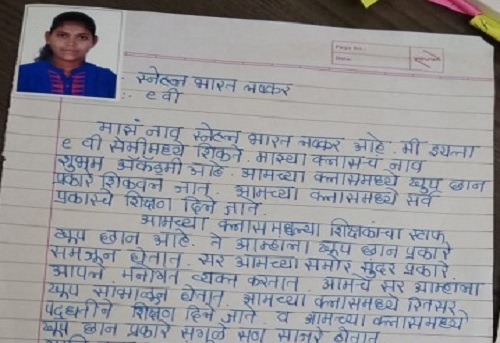 Page No.
Date
स्नेहल भारत लष्कर
९ वी
माझं नाव स्नेहल भारत लष्कर आहे. मी इयत्ता
९ वी सेमीमध्ये शिकते. माझ्या क्लासचं नाव
शुभम अ‍ॅकॅडमी आहे. आमच्या क्लासमध्ये खूप छान
प्रकारे शिकवले जात. आमच्या क्लासमध्ये सर्व
प्रकारचे शिक्षण दिले जाते.
आमच्या क्लासमधल्या शिक्षकांचा स्टाफ
खूप छान आहे. ते आम्हाला खूप छान प्रकारे
समजून घेतात. सर आमच्या समोर सुंदर प्रकारे
आपले मनोगत व्यक्त करतात. आमचे सर आम्हाला
खूप सांभाळून घेतात. आमच्या क्लासमध्ये रितसर
पद्धतीने शिक्षण दिले जाते. व आमच्या क्लासमध्ये
खूप छान प्रकारे सगळे सण साजरे होतात